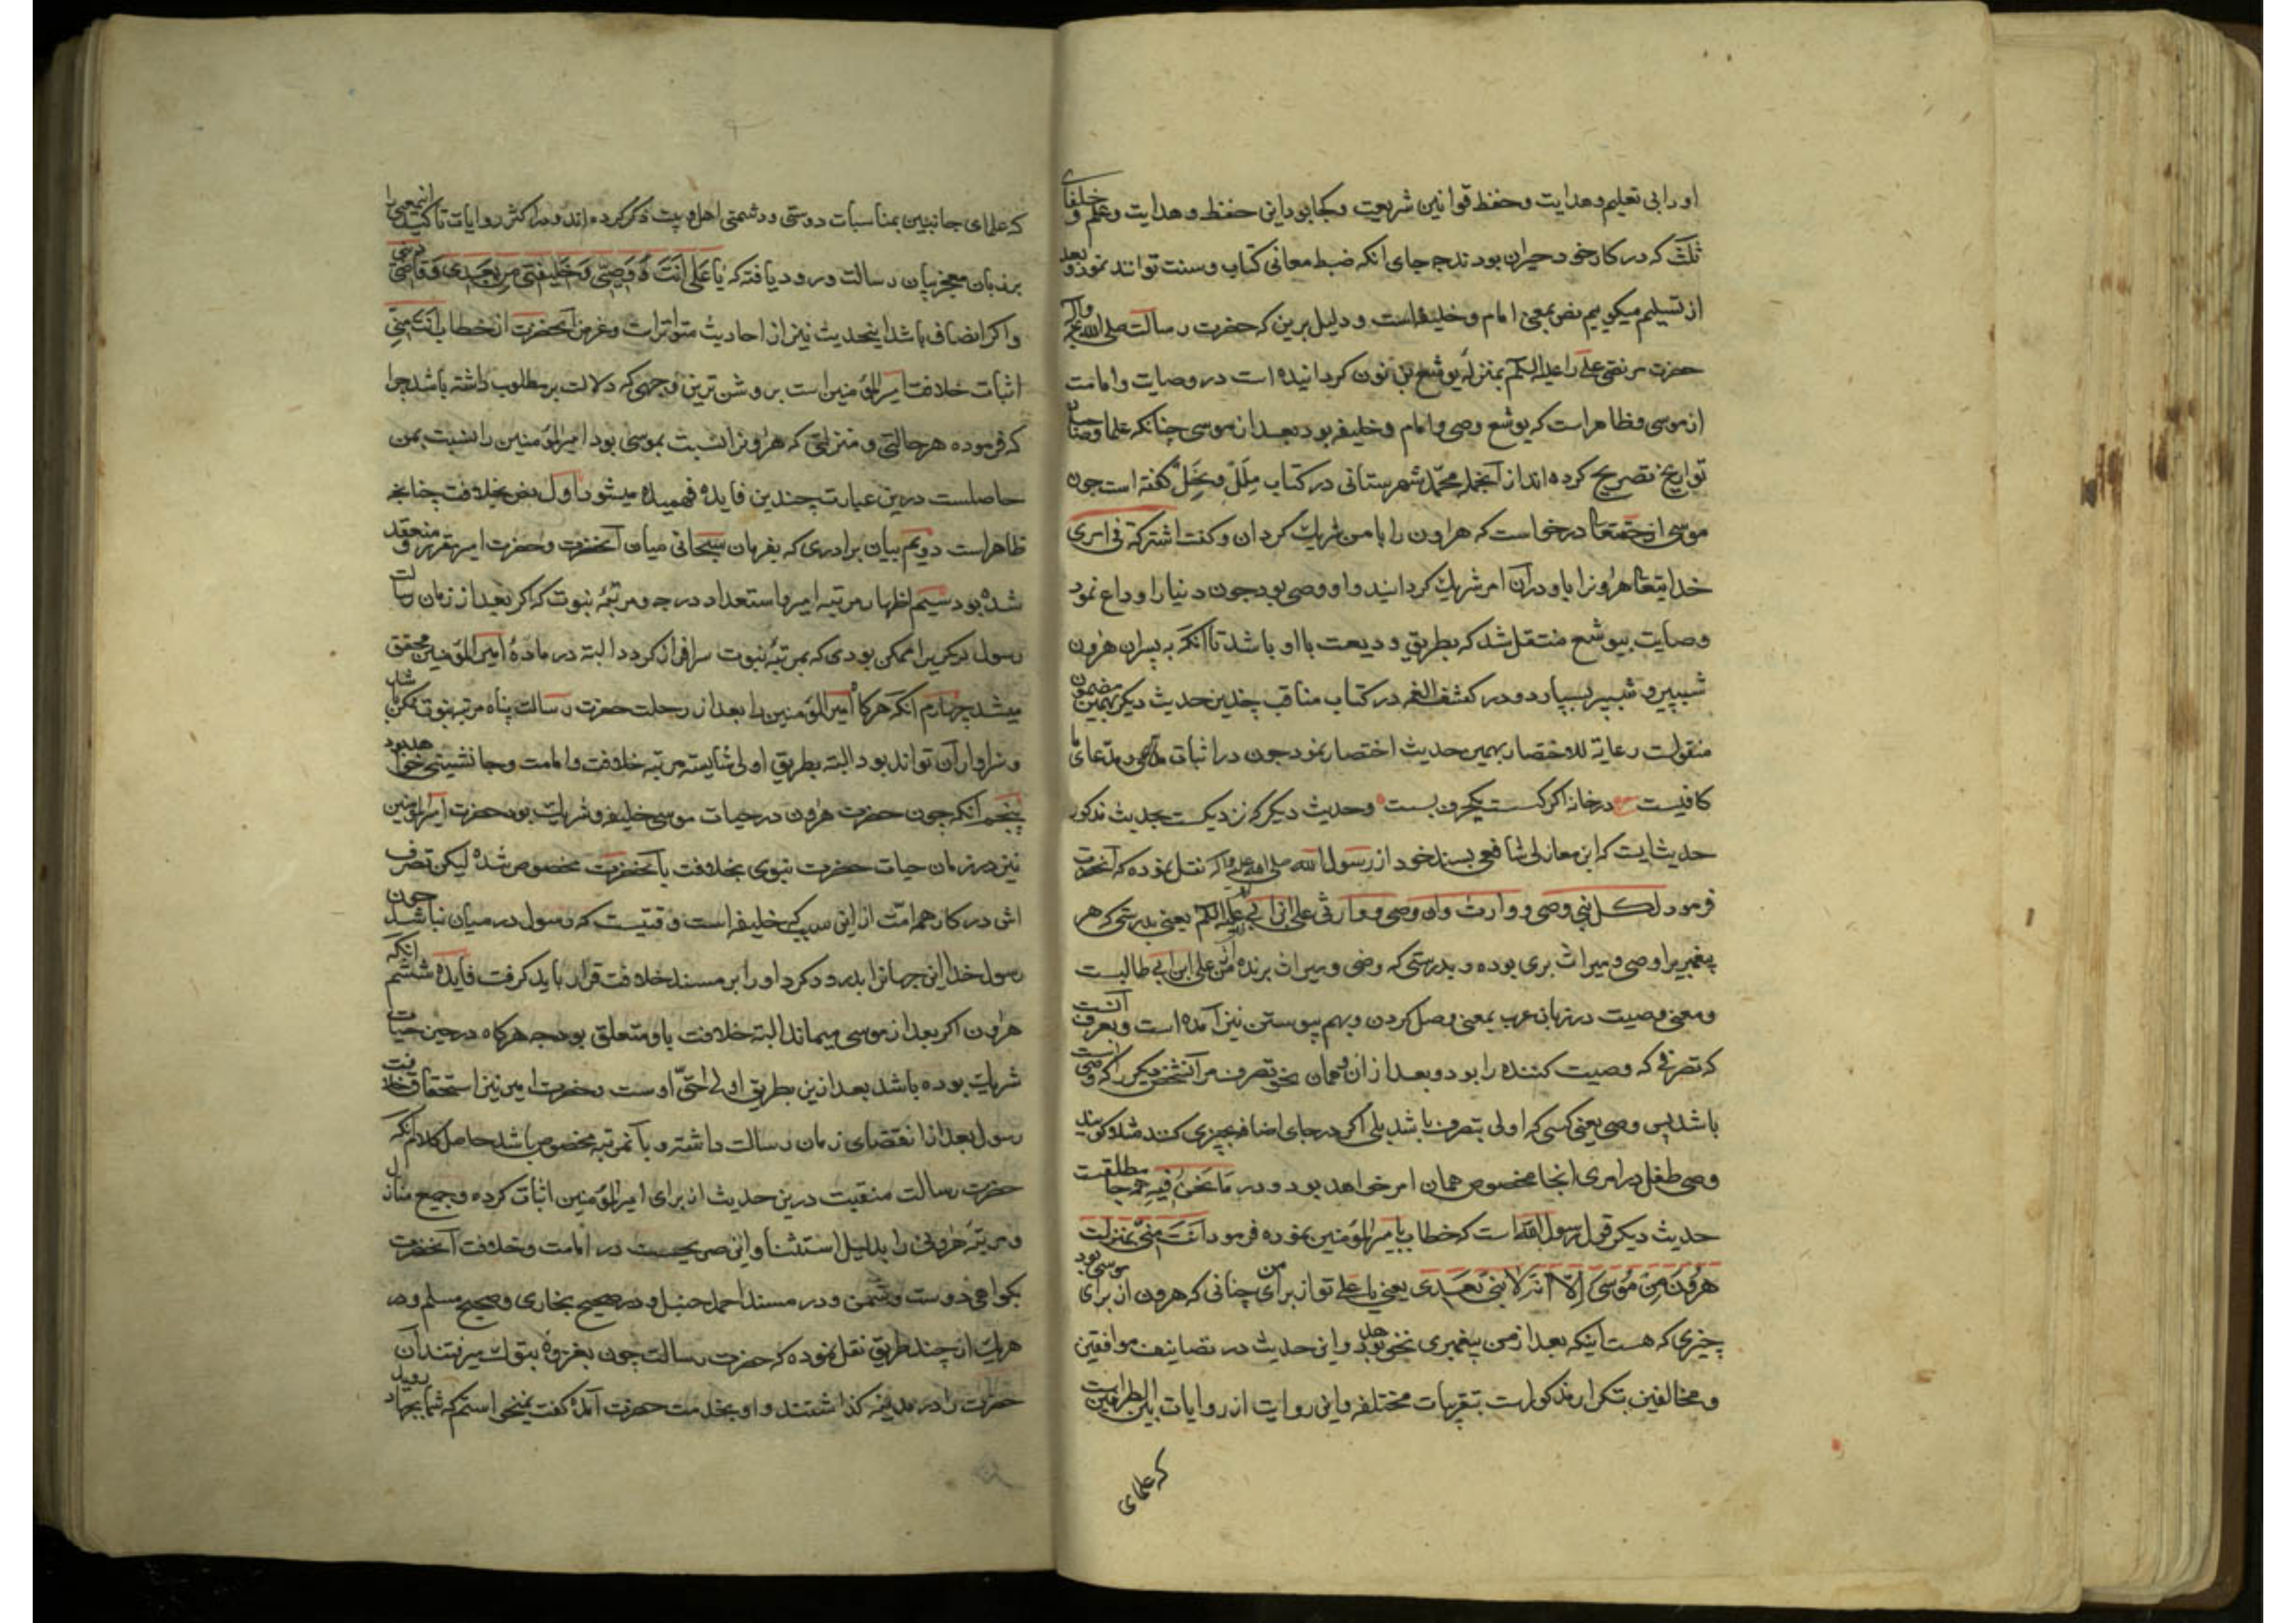 او را بی تعلیم و هدایت و حفظ قوانین شریعت و کجا بود این حفظ و هدایت و علم و خلفای
ثلث که در کار خود حیران بودند چه جای آنکه ضبط معانی کتاب و سنت توانند نمود و بعد
از تسلیم میکوییم نص بمعنی امام و خلیفه است و دلیل برین که حضرت رسالت صلی الله علیه وآله
حضرت مرتضی علی را علیه السلم بمنزله یوشع بن نون کردانیده است در وصایت و امامت
از موسی و ظاهر است که یوشع وصی و امام و خلیفه بود بعد از موسی چنانکه علما و صاحبان
تواریخ تصریح کرده اند از آنجمله محمد شهرستانی در کتاب ملل و نحل کفته است چون
موسی از حقتعالی درخواست که هارون را با من شریک کردان و کفت اشرکه فی امری
خدایتعالی هرونرا با و در آن امر شریک کردانید و او وصی بود چون دنیا را وداع نمود
وصایت بیوشع منتقل شد که بطریق ودیعت با او باشد تا آنکه به پسران هرون
شبیر و شبر بسپارد و در کشف الغمه در کتاب مناقب چندین حدیث دیکر بهمین مضمون
منقولست رعایة للاختصار بهمین حدیث اختصار نمود چون در اثبات مدعی و مدعای ما
کافیست درخانه اکر کست یکحرف بست وحدیث دیکر که نزدیکست بحدیث مذکور
حدیثیست که ابن مغازلی شافعی بسند خود از رسول الله صلی الله علیه وآله نقل نموده که آنحضرت
فرمود لکل نبی وصی و وارث وان وصی و وارثی علی ابن ابی علیه السلم یعنی بدرستی که هر
پیغمبریرا وصی و میراث بری بوده و بدرستی که وصی و میراث برنده من علی ابن ابی طالبست
و معنی وصیت در زبان عرب بمعنی وصل کردن و بهم پیوستن نیز آمده است و بعرف آنست
که تصرفی که وصیت کننده را بود و بعد از ان همان نحو تصرف مر آنشخص دیکر را که وصی است
باشد پس وصی یعنی کسی که اولی بتصرف باشد بلی اکر در جای اضافه بچیزی کنند مثلا کویند
وصی طفل در امری انجا مخصوص همان امر خواهد بود و در ما نحن فیه همه جا مطلقست
حدیث دیکر قول رسول الله است که خطاب بامیرالمؤمنین نموده فرمود انت منی بمنزلت
هرون من موسی الا انه لا نبی بعدی یعنی یا علی تو از برای من چنانی که هرون از برای موسی بود
چیزی که هست اینکه بعد از من پیغمبری نخواهد بود و این حدیث در تصانیف موافقین
و مخالفین بتکرار مذکور است بتقریبات مختلفه و این روایت از روایات بین الطرفین است
که علمای
که علمای جانبین بمناسبات دوستی و دشمنی اهل بیت ذکر کرده اند و در اکثر روایات تاکید اینمعنی را
بر زبان معجز بیان رسالت ورود یافته که یا علی انت وصیی و خلیفتی من بعدی و قاضی دینی
و اکر انصاف باشد اینحدیث نیز از احادیث متواتر است و غرض آنحضرت از خطاب انت منی
اثبات خلافت امیرالمؤمنین است بر روشن ترین وجهی که دلالت بر مطلوب داشته باشد چرا
که فرموده هر حالتی و منزلتی که هرونرا نسبت بموسی بود امیرالمؤمنین را نسبت بمن
حاصلست درین عبارت چندین فایده فهمیده میشود اول نص بخلافت چنانچه
ظاهر است دویم بیان برادری که بفرمان سبحانی میان آنحضرت و حضرت امیر مقرر و منعقد
شده بود سیم اظهار مرتبه امیر و استعداد درجه و مرتبه نبوت که اکر بعد از زمان رسالت
رسول دیکریرا ممکن بودی که بمرتبه نبوت سرافراز کردد البته در ماده امیرالمؤمنین محقق
میشد چهارم آنکه هرکاه امیرالمؤمنین را بعد از رحلت حضرت رسالت پناه مرتبه نبوت ممکن باشد
و سزاوار آن تواند بود البته بطریق اولی شایسته مرتبه خلافت و امامت و جانشینی خواهد بود
پنجم آنکه چون حضرت هرون در حیات موسی خلیفه و شریک بود حضرت امیرالمؤمنین
نیز در زمان حیات حضرت نبوی بخلافت با آنحضرت مخصوص شده لیکن تصرف
اش در کار همه امت از این سبب که خلیفه است وقتیست که رسول در میان نباشد چون
رسول خدا این جهانرا بدرود کرد او را بر مسند خلافت قرار باید کرفت فایده ششم آنکه
هرون اکر بعد از موسی میماند البته خلافت باو متعلق بود چه هرکاه در حین حیات
شریک بوده باشد بعد ازین بطریق اولی احق اوست و حضرت امیر نیز استحقاق خلافت
رسول بعد از انقضای زمان رسالت داشته و بآنمرتبه مخصوص باشد حاصل کلام آنکه
حضرت رسالت منقبت درین حدیث از برای امیرالمؤمنین اثبات کرده جمیع منازل
و مرتبه هرونی را بدلیل استثنا و این صریحست در امامت و خلافت آنحضرت
بکواهی دوست و دشمن و در مسند احمد حنبل و در صحیح بخاری و صحیح مسلم و در
هریک از چند طریق نقل نموده که حضرت رسالت چون بغزوه تبوک میرفتند آن
حضرت را در مدینه کذاشتند و او بخدمت حضرت آمده کفت نمیخواستم که شما بجهاد روید